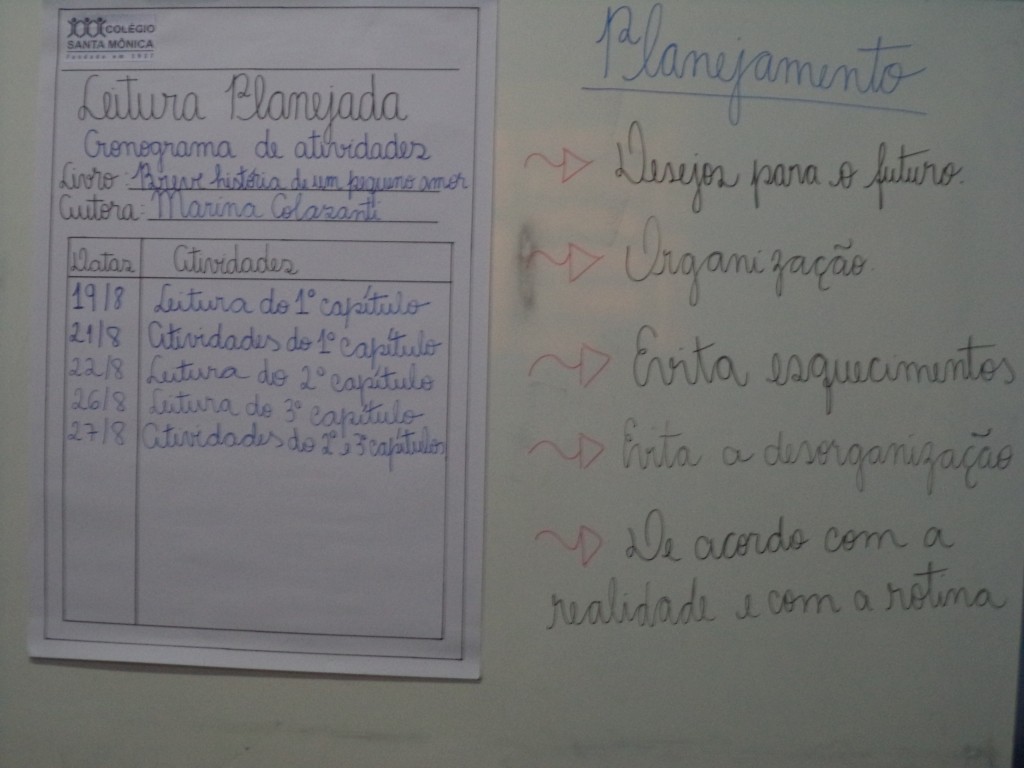 COLÉGIO
SANTA MÔNICA
Fundado em 1937
Leitura Planejada
Cronograma de atividades
Livro: Breve história de um pequeno amor
Autora: Marina Colasanti
Datas Atividades
19/8 Leitura do 1º capítulo
21/8 Atividades do 1º capítulo
22/8 Leitura do 2º capítulo
26/8 Leitura do 3º capítulo
27/8 Atividades do 2º e 3º capítulos
Planejamento
Desejos para o futuro.
Organização.
Evita esquecimentos
Evita a desorganização
De acordo com a
realidade e com a rotina